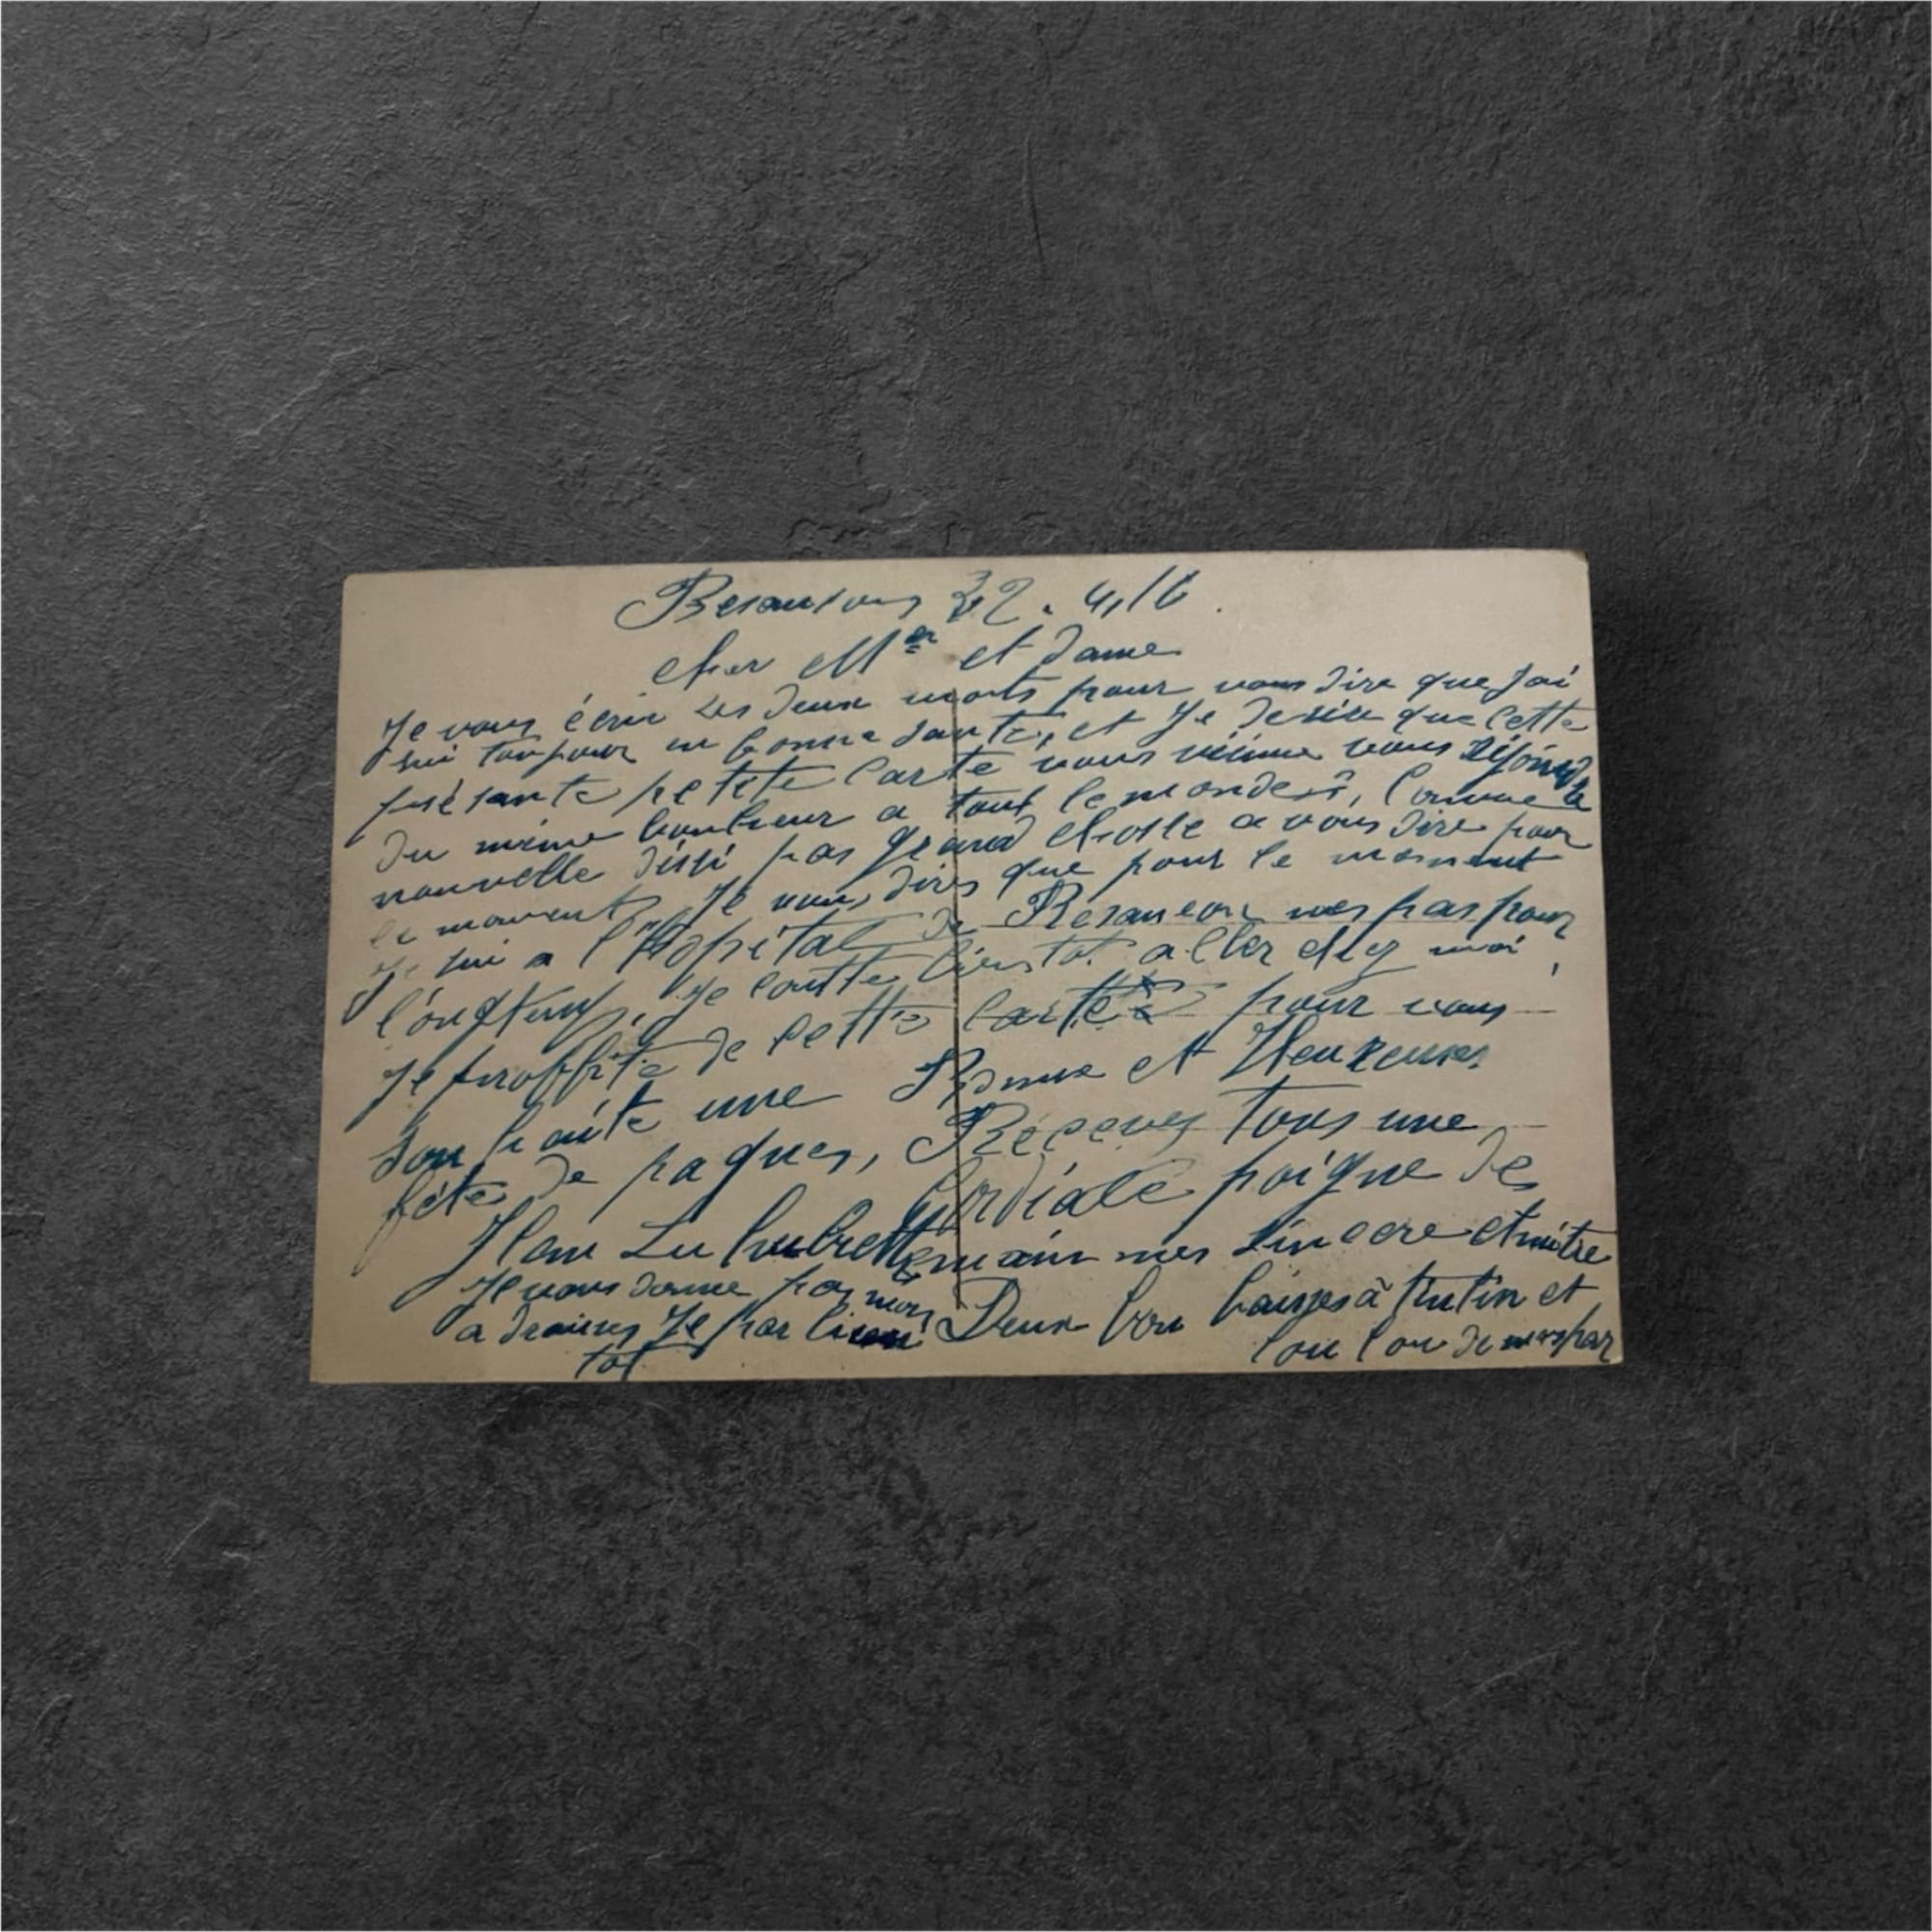 Besançon 22. 4. 16.
cher Mr et dame
Je vous écrir ses deux mots pour vous dire que Jai
sui toujour en bonne sante, et Je desire que cette
présante petite carte vous
du même bonheur a tout le monde,
nouvelle dissi pas grand chosse a vous dire pour
le moment, Je vous dires que pour le moment
Je sui a l'Hopital de Besancon mes pas pour
longtemps, Je contte bientot aller chez moi
Je proffite de cette carte pour vous
souhaite une Bonne et Heureuses
fête de paques, Recevez tous une
Cordiale poigne de
main mes sincere
Je vous donne pas mon Deux bon baises à Titin et
adreives Je par bien Lou Lou de
tot